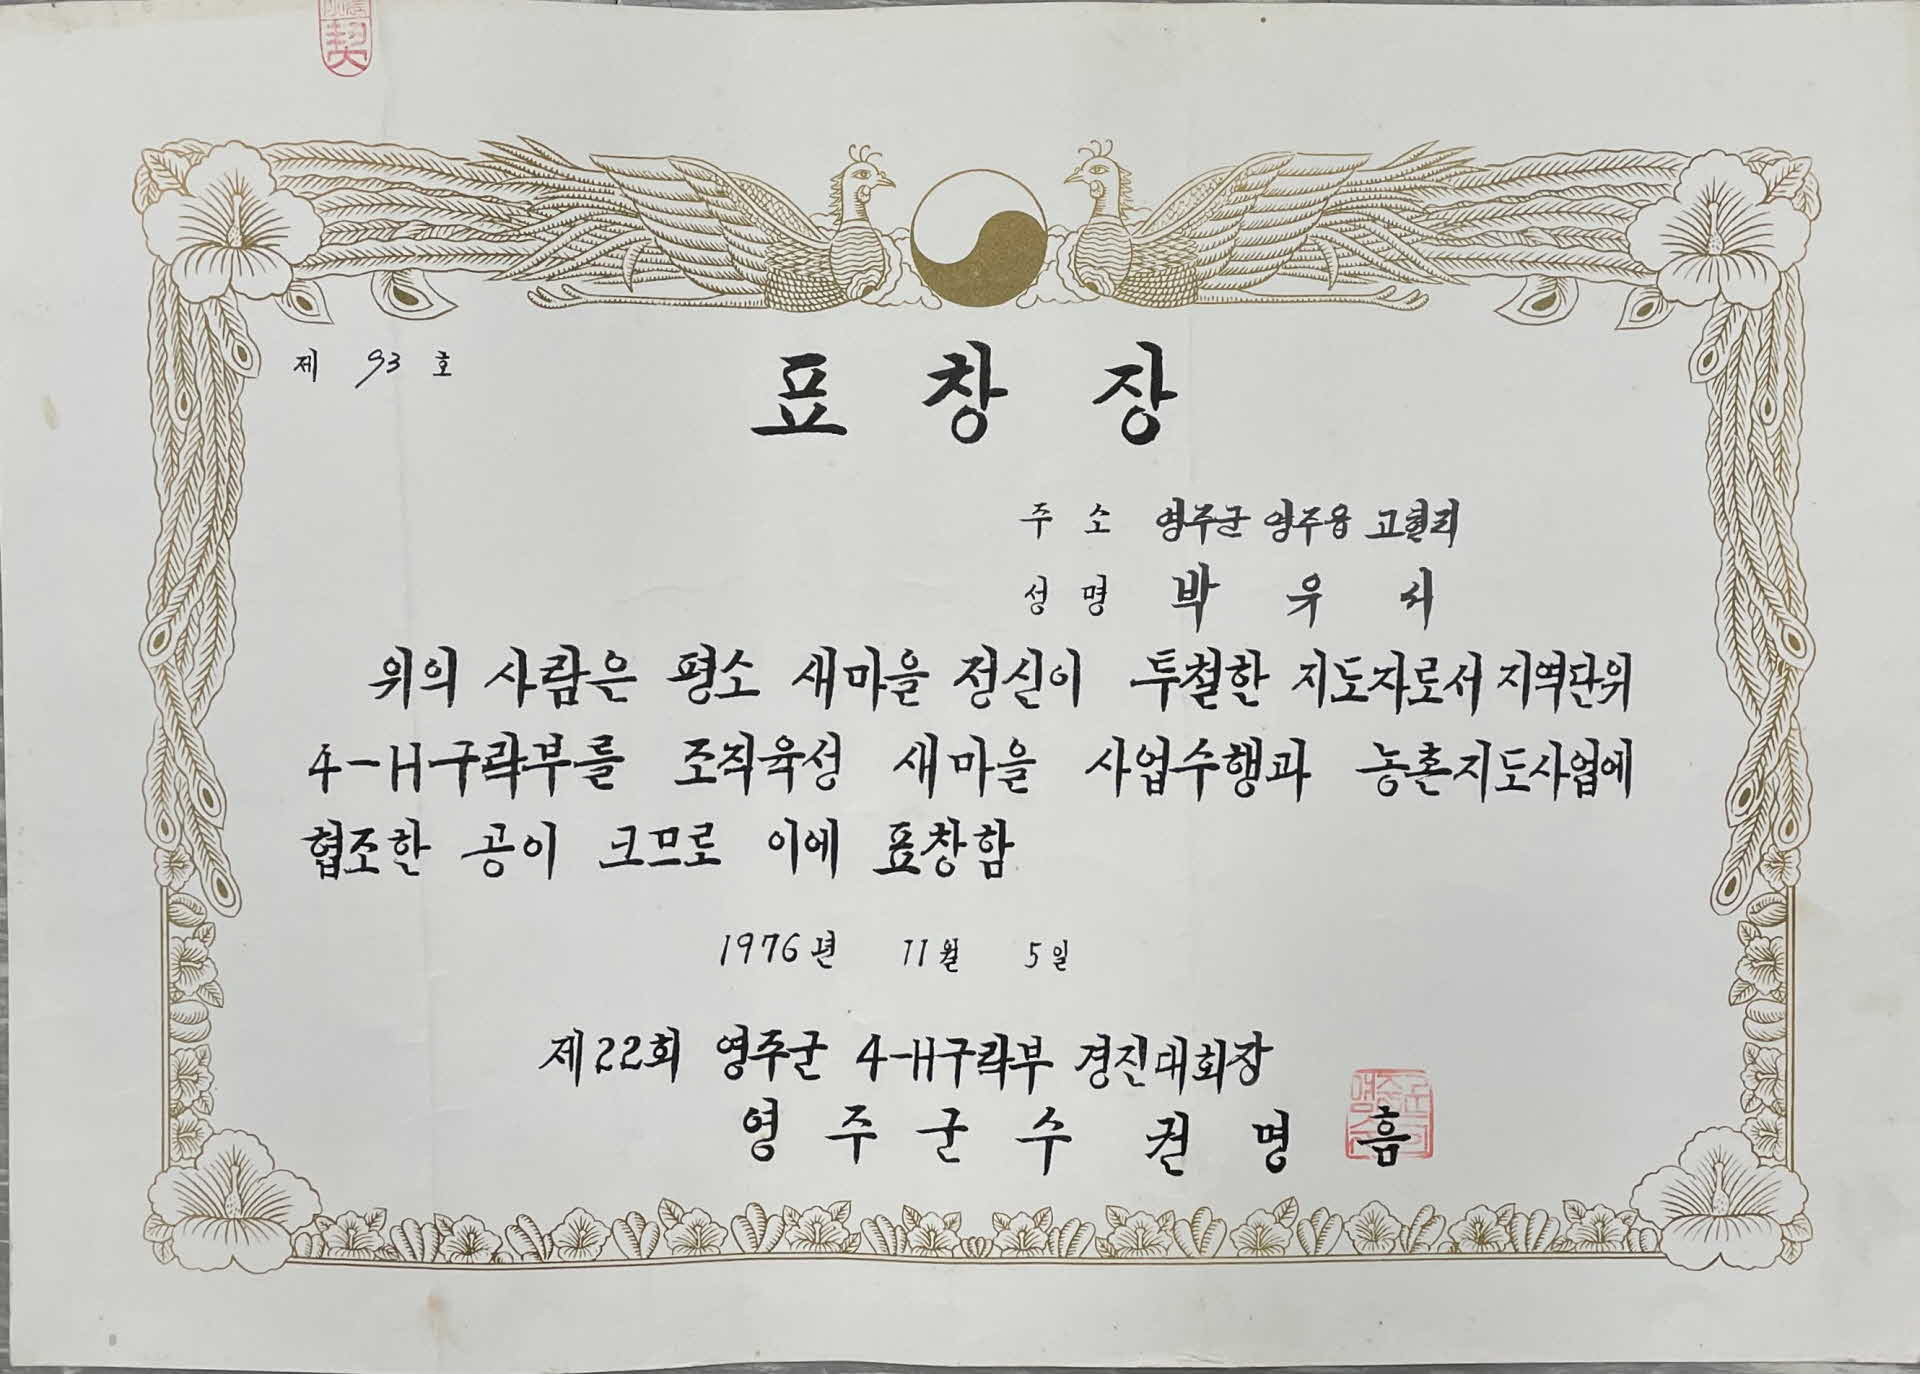 제 93 호
표 창 장
주 소 영주군 영주읍 고현리
성 명 박 우 서
위의 사람은 평소 새마을 정신이 투철한 지도자로서 지역단위
4-H구락부를 조직육성 새마을 사업수행과 농촌지도사업에
협조한 공이 크므로 이에 표창함
1976년 11월 5일
제22회 영주군 4-H구락부 경진대회장
영 주 군 수 권 명 흠